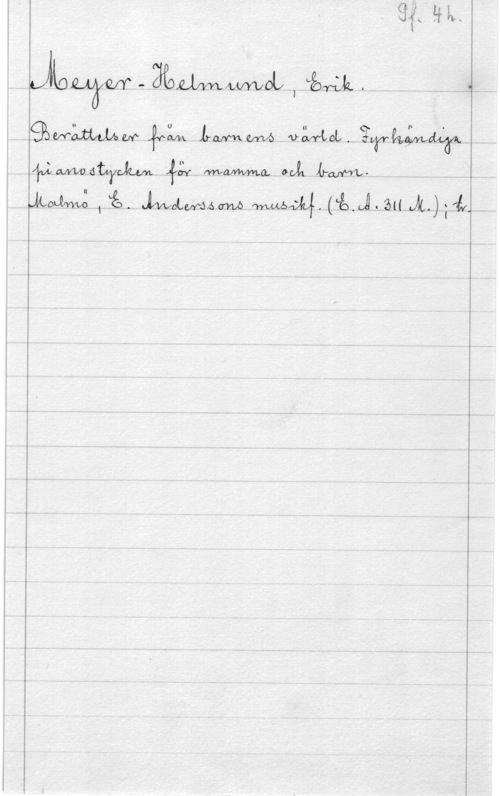 Pf. 4h.
Meyer-Helmund, Erik.
Berättelser från barnens värld. Fyrhändiga
pianostycken för mamma och barn.
Malmö, E. Anderssons musikf. (E. A. 311 M.); tr.